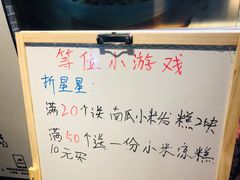 等位小游戏
折星星：
满20个送南瓜小米发糕2块
满50个送一份小米凉糕
10元买